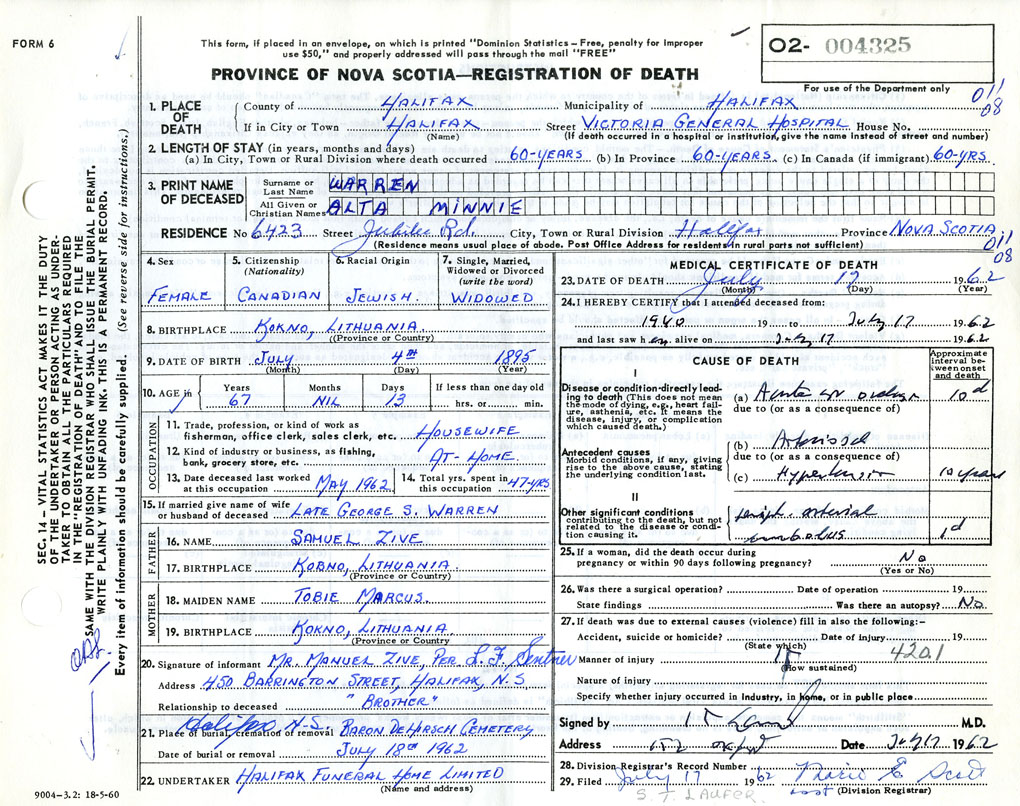 FORM 6
This form, if placed in an envelope, on which is printed "Dominion Statistics – Free, penalty for improper
use $50," and properly addressed will pass through the mail "FREE"
PROVINCE OF NOVA SCOTIA—REGISTRATION OF DEATH
02- 004325
For use of the Department only
011
08
1. PLACE OF DEATH
County of HALIFAX Municipality of HALIFAX
If in City or Town HALIFAX Street VICTORIA GENERAL HOSPITAL House No.
(Name) (If death occurred in a hospital or institution, give the name instead of street and number)
2. LENGTH OF STAY (in years, months and days)
(a) In City, Town or Rural Division where death occurred 60-YEARS (b) In Province 60-YEARS (c) In Canada (if immigrant) 60-YRS
3. PRINT NAME OF DECEASED
Surname or Last Name WARREN
All Given or Christian Names ALTA MINNIE
RESIDENCE No 6423 Street Jubilee Rd. City, Town or Rural Division Halifax Province NOVA SCOTIA
(Residence means usual place of abode. Post Office Address for residents in rural parts not sufficient)
011
08
4. Sex FEMALE
5. Citizenship (Nationality) CANADIAN
6. Racial Origin JEWISH.
7. Single, Married, Widowed or Divorced (write the word) WIDOWED
8. BIRTHPLACE KOKNO, LITHUANIA.
(Province or Country)
9. DATE OF BIRTH JULY 4TH 1895
(Month) (Day) (Year)
10. AGE in Years 67 Months NIL Days 13 If less than one day old hrs. or min.
OCCUPATION
11. Trade, profession or kind of work as fisherman, office clerk, sales clerk, etc. HOUSEWIFE
12. Kind of industry or business, as fishing, bank, grocery store, etc. AT-HOME.
13. Date deceased last worked at this occupation MAY 1962
14. Total yrs. spent in this occupation 47-YRS
15. If married give name of wife or husband of deceased LATE GEORGE S. WARREN
FATHER
16. NAME SAMUEL ZIVE
17. BIRTHPLACE KOBNO, LITHUANIA.
(Province or Country)
MOTHER
18. MAIDEN NAME TOBIE MARCUS.
19. BIRTHPLACE KOKNO, LITHUANIA
(Province or Country
20. Signature of informant MR. MANUEL ZIVE, PER L. F. Sentner
Address 450 BARRINGTON STREET, HALIFAX, N.S
Relationship to deceased "BROTHER"
Halifax N.S.
21. Place of burial, cremation of removal BARON DEHIRSCH CEMETERY
Date of burial or removal JULY 18th 1962
22. UNDERTAKER HALIFAX FUNERAL HOME LIMITED
(Name and address)
9004-3.2: 18-5-60
MEDICAL CERTIFICATE OF DEATH
23. DATE OF DEATH July 17 1962
(Month) (Day) (Year)
24. I HEREBY CERTIFY that I attended deceased from:
1940 19 to July 17 1962
and last saw her alive on July 17 1962
CAUSE OF DEATH
Approximate interval between onset and death
I
Disease or condition directly leading to death (This does not mean the mode of dying, e.g., heart failure, asthenia, etc. It means the disease, injury, or complication which caused death.)
(a) 10 d
due to (or as a consequence of)
Antecedent causes
Morbid conditions, if any, giving rise to the above cause, stating the underlying condition last.
(b)
due to (or as a consequence of)
(c) Hypertension 10 years
II
Other significant conditions contributing to the death, but not related to the disease or condition causing it.
periph. arterial
embolus 1d
25. If a woman, did the death occur during
pregnancy or within 90 days following pregnancy? No
(Yes or No)
26. Was there a surgical operation? Date of operation 19
State findings Was there an autopsy? No.
27. If death was due to external causes (violence) fill in also the following:-
Accident, suicide or homicide? Date of injury 19
(State which)
Manner of injury 420.1
(How sustained)
Nature of injury
Specify whether injury occurred in industry, in home, or in public place
Signed by M.D.
Address Date July 17 1962
28. Division Registrar's Record Number
29. Filed July 17 1962 Marie E. Scott
(Division Registrar)
S. T. LAUFER
SEC. 14 – VITAL STATISTICS ACT MAKES IT THE DUTY
OF THE UNDERTAKER OR PERSON ACTING AS UNDERTAKER TO OBTAIN ALL THE PARTICULARS REQUIRED
IN THE "REGISTRATION OF DEATH" AND TO FILE THE
SAME WITH THE DIVISION REGISTRAR WHO SHALL ISSUE THE BURIAL PERMIT.
WRITE PLAINLY WITH UNFADING INK. THIS IS A PERMANENT RECORD.
Every item of information should be carefully supplied. (See reverse side for instructions.)